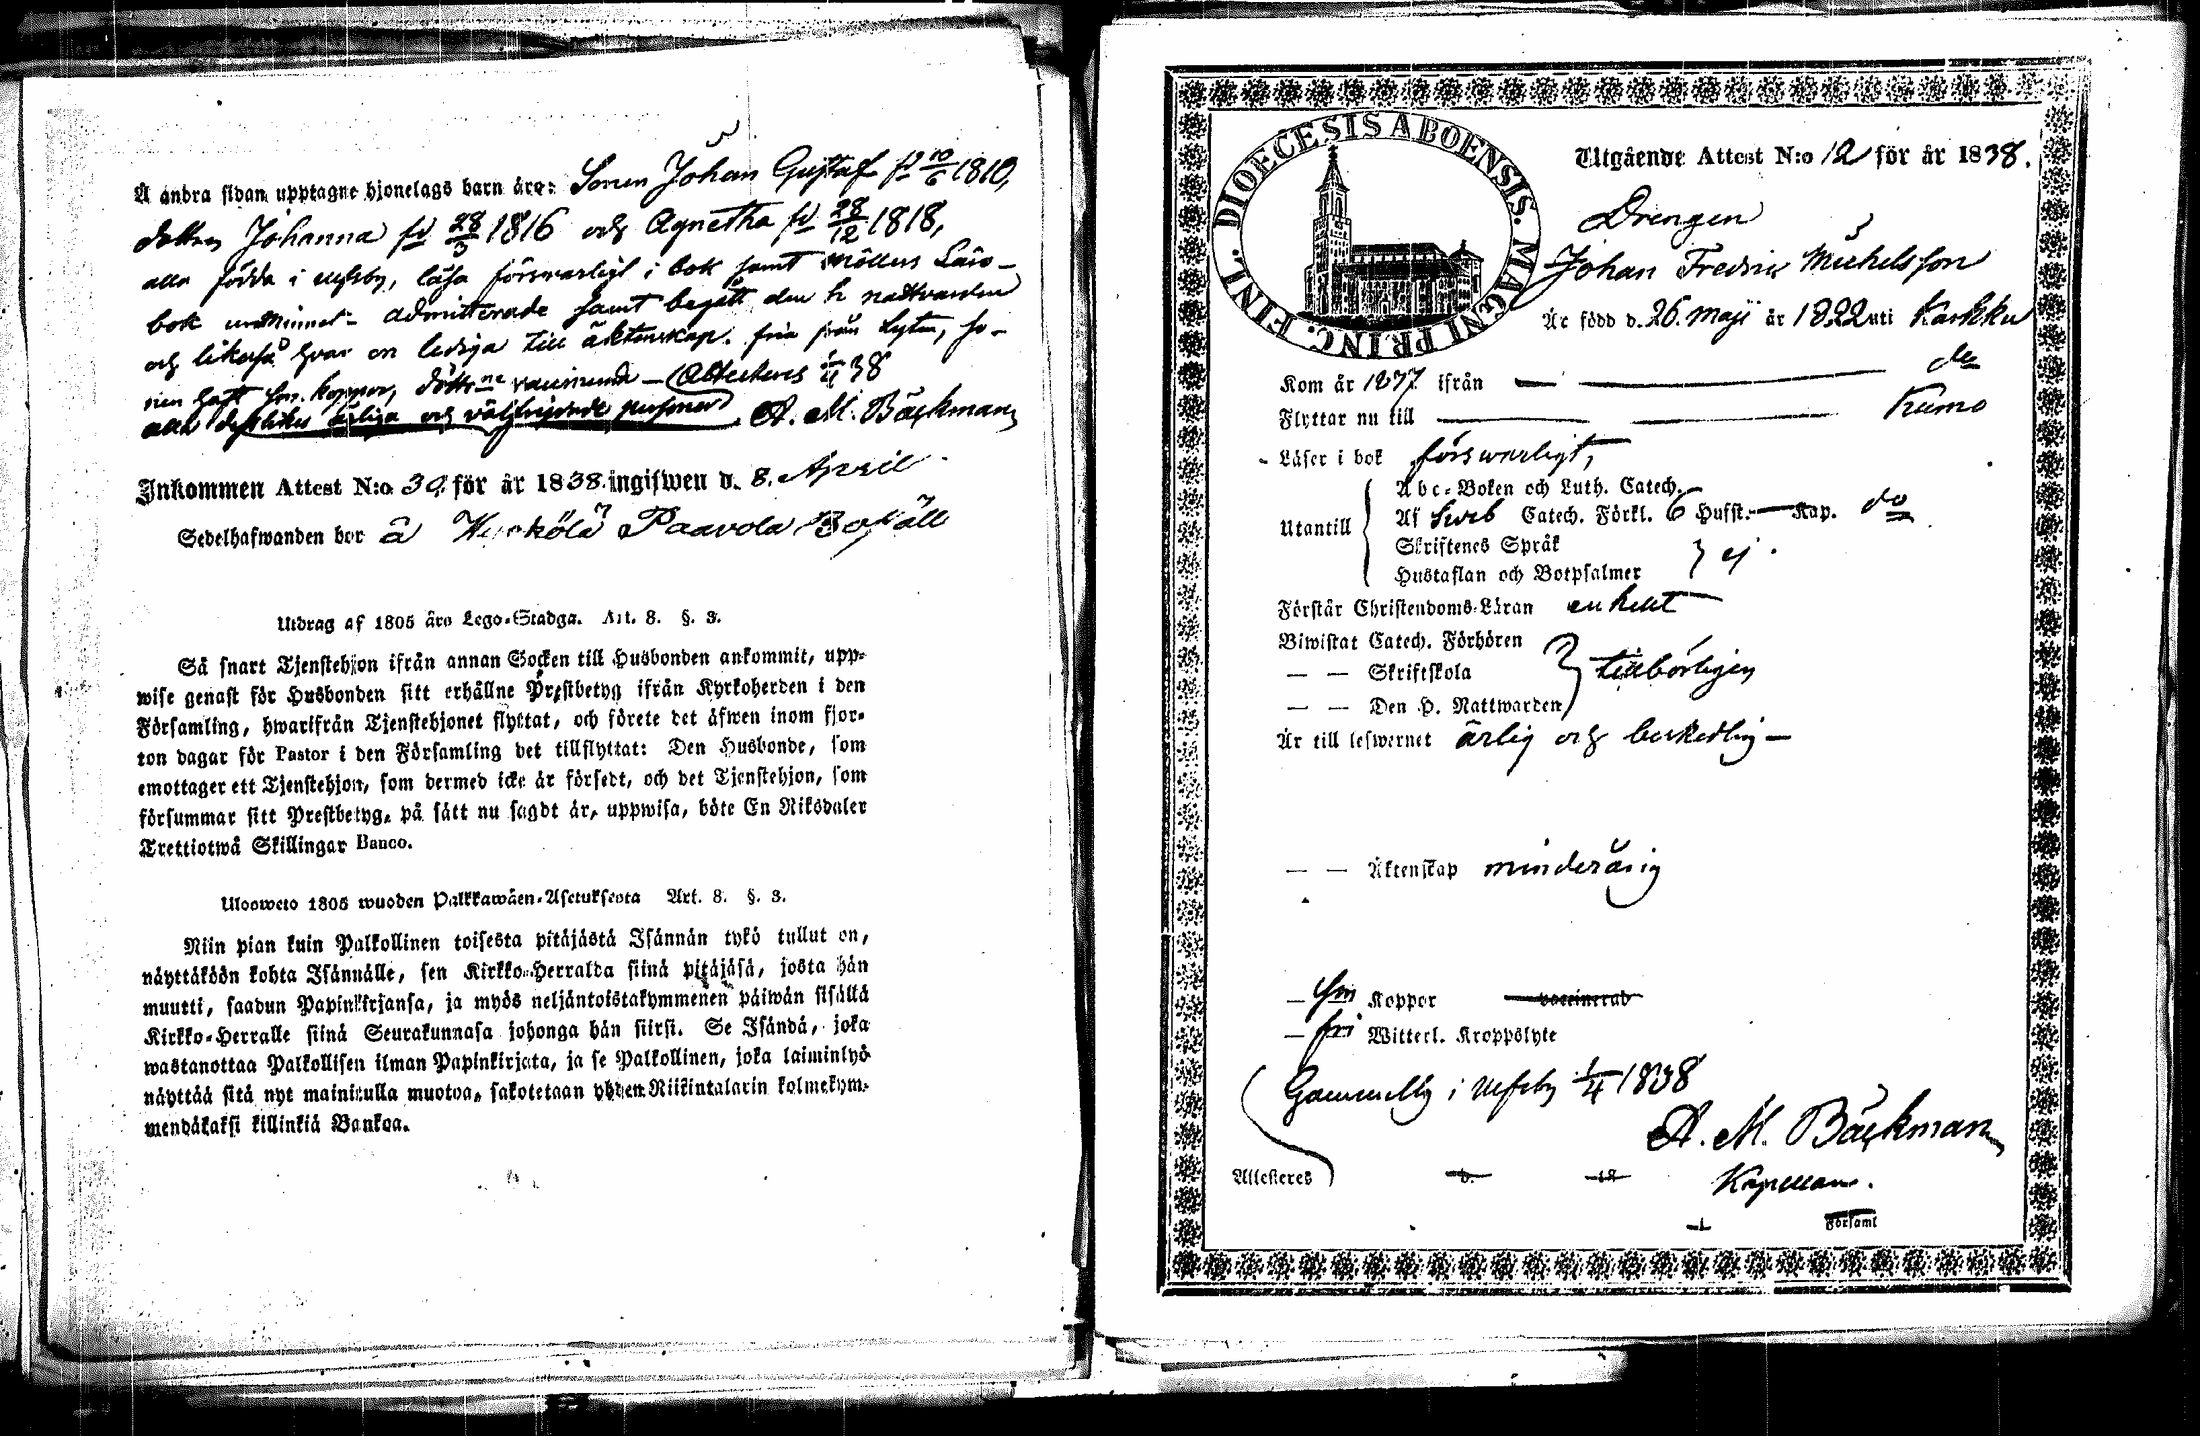 Å andra sidan upptagne hjonelags barn äro: Sonen Johan Gustaf fd 10/6 1810,
dottren Johanna fd 28/3 1816 och Agnetha fd 28/12 1818,
alla födda i Ulfsby, läsa försvarligt i bok samt Möllers Läro-
bok utminnet admitterade samt begått den h nattvarden
och likaså hvar en lediga till äktenskap. fria från Lyten, so-
nen haft sm. koppor, döttrne vaccinerade — Attesteras 1/4 38
alla desslikes ärliga och välfrejdade personer. A. M. Bäckman
Inkommen Attest N:o 39. för år 1838. ingifwen d. 8. April
Sedelhafwanden bor å Paavola Bohäll
Utdrag af 1805 års Lego-Stadga. Art. 8. §. 3.
Så snart Tjenstehjon ifrån annan Socken till Husbonden ankommit, upp-
wise genast för Husbonden sitt erhållne Prestbetyg ifrån Kyrkoherden i den
Församling, hwarifrån Tjenstehjonet flyttat, och förete det äfwen inom fjor-
ton dagar för Pastor i den Församling det tillflyttat: Den Husbonde, som
emottager ett Tjenstehjon, som dermed icke är försedt, och det Tjenstehjon, som
försummar sitt Prestbetyg, på sätt nu sagdt är, uppwisa, böte En Riksdaler
Trettiotwå Skillingar Banco.
Ulosweto 1805 wuoden Palkkawäen-Asetuksesta Art. 8. §. 3.
Niin pian kuin Palkollinen toisesta pitäjästä Isännän tykö tullut on,
näyttäköön kohta Isännälle, sen Kirkko-Herralda siinä pitäjäsä, josta hän
muutti, saadun Papinkirjansa, ja myös neljäntoistakymmenen päiwän sisällä
Kirkko-Herralle siinä Seurakunnasa johonga hän siirsi. Se Isändä, joka
wastanottaa Palkollisen ilman Papinkirjata, ja se Palkollinen, joka laiminlyö
näyttää sitä nyt mainitulla muotoa, sakotetaan yhden Riikintalarin kolmekym-
mendäkaksi killinkiä Bankoa.
DIOECESIS ABOENSIS. MAGNI PRINC. FINL.
Utgående Attest N:o 12 för år 1838.
Drengen
Johan Fredric Michelsson
Är född d. 26. Maji år 1822 uti Karkku
Kom år 1837 ifrån — do
Flyttar nu till — Kumo
Läser i bok försvarligt,
Abc-Boken och Luth. Catech.
Utantill Af Sveb Catech. Förkl. 6 Hufst. — Kap. do
Skriftenes Språk
Hustaflan och Botpsalmer } ej.
Förstår Christendoms-Läran enkelt
Biwistat Catech. Förhören
— — Skriftskola } tillbörligen
— — Den H. Nattwarden
Är till lefwernet ärlig och beskedlig —
— — Äktenskap minderårig
— Sm Koppor vaccinerad
— fri Witterl. Kroppslyte
Gammelby i Ulfsby 1/4 1838
A. M. Bäckman
Attesteres d. 18 Kapellan.
Församl